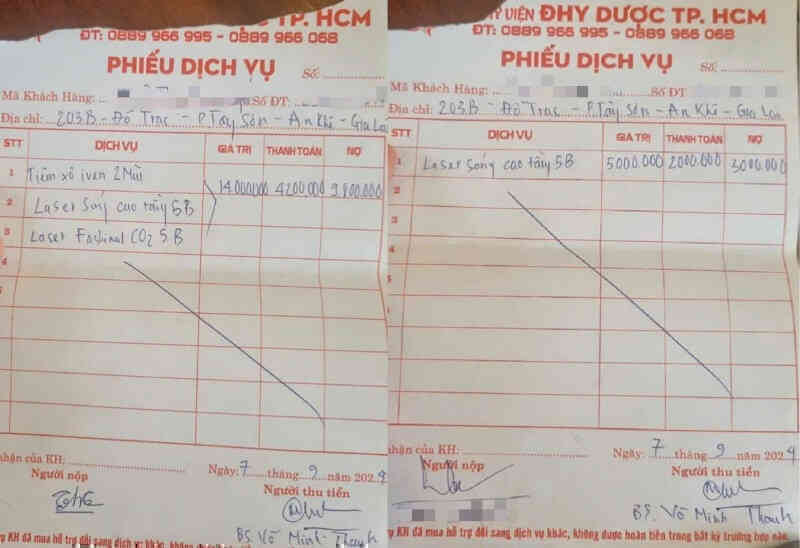 DƯỢC TP. HCM
ĐT: 0889 966 995 - 0889 966 068
PHIẾU DỊCH VỤ
Số:
Mã Khách Hàng:
Số ĐT:
Địa chỉ: 203B - Đỗ Trạc - P.Tây Sơn - An Khê - Gia Lai
STT DỊCH VỤ GIÁ TRỊ THANH TOÁN NỢ
1 Tiêm 2 Mũi
2 Laser Sóng cao tầng 5B 14.000.000 4200.000 9800.000
3 Laser CO2 5B
4
nhận của KH:
Ngày: 7 tháng 9 năm 2024
Người nộp
Người thu tiền
BS. Võ Minh Thanh
KH đã mua hỗ trợ đổi sang dịch vụ khác, không được hoàn tiền
VIỆN ĐHY DƯỢC TP. HCM
ĐT: 0889 966 995 - 0889 966 068
PHIẾU DỊCH VỤ
Số:
Mã Khách Hàng:
Số ĐT
Địa chỉ: 203B - Đỗ Trạc - P.Tây Sơn - An Khê - Gia Lai
STT DỊCH VỤ GIÁ TRỊ THANH TOÁN NỢ
1 Laser Sóng cao tầng 5B 5000.000 2000.000 3000.000
2
3
4
5
nhận của KH:
Ngày: 7 tháng 9 năm 2024
Người nộp
Người thu tiền
BS. Võ Minh Thanh
KH đã mua hỗ trợ đổi sang dịch vụ khác, không được hoàn tiền trong bất kỳ trường hợp nào